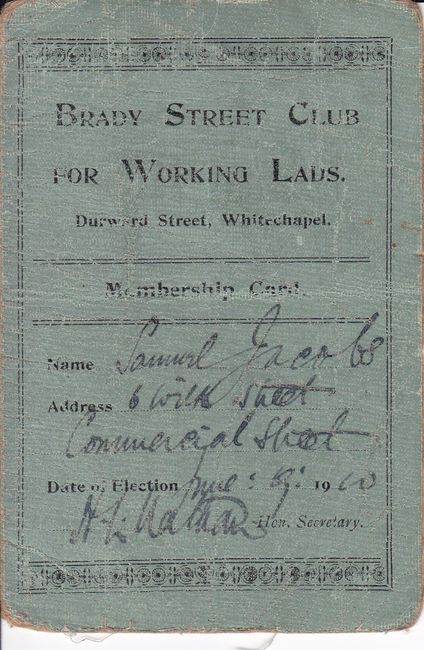 BRADY STREET CLUB
FOR WORKING LADS.
Durward Street, Whitechapel.
Membership Card.
Name Samuel Jacobs
Address 6 Wilk Street
Commercial Street
Date of Election June 19
Hon. Secretary.